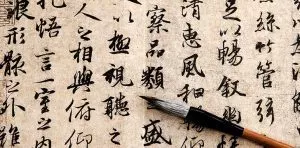 絲竹管弦
足以暢敘幽
清惠風和暢仰
察品類之盛
以極視聽之
人之相與俯仰
抱悟言一室之內
浪形骸之外雖